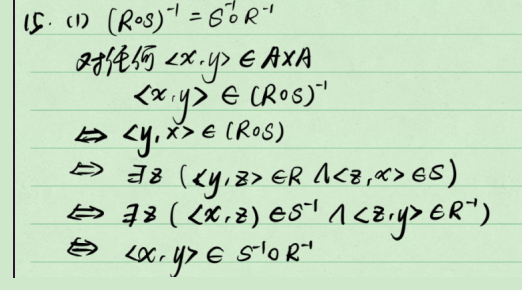 15. (1) (R∘S)⁻¹ = S⁻¹∘R⁻¹
对任何 <x,y> ∈ A×A
<x,y> ∈ (R∘S)⁻¹
⇔ <y,x> ∈ (R∘S)
⇔ ∃z (<y,z> ∈R ∧<z,x> ∈S)
⇔ ∃z ( <x,z) ∈S⁻¹ ∧ <z,y> ∈R⁻¹)
⇔ <x,y> ∈ S⁻¹∘R⁻¹